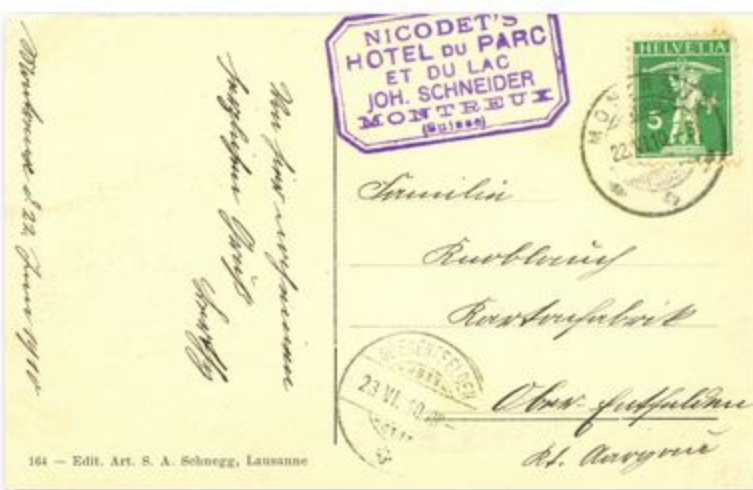 NICODET'S
HOTEL DU PARC
ET DU LAC
JOH. SCHNEIDER
MONTREUX
(Suisse)
HELVETIA
5
Montreux d. 22. Juni 1910
herzlichen Gruß
Familie
Knoblauch
Kartonfabrik
Ober-Entfelden
Kt. Aargau
OBERENTFELDEN
23.VI.10
164 — Edit. Art. S. A. Schnegg, Lausanne